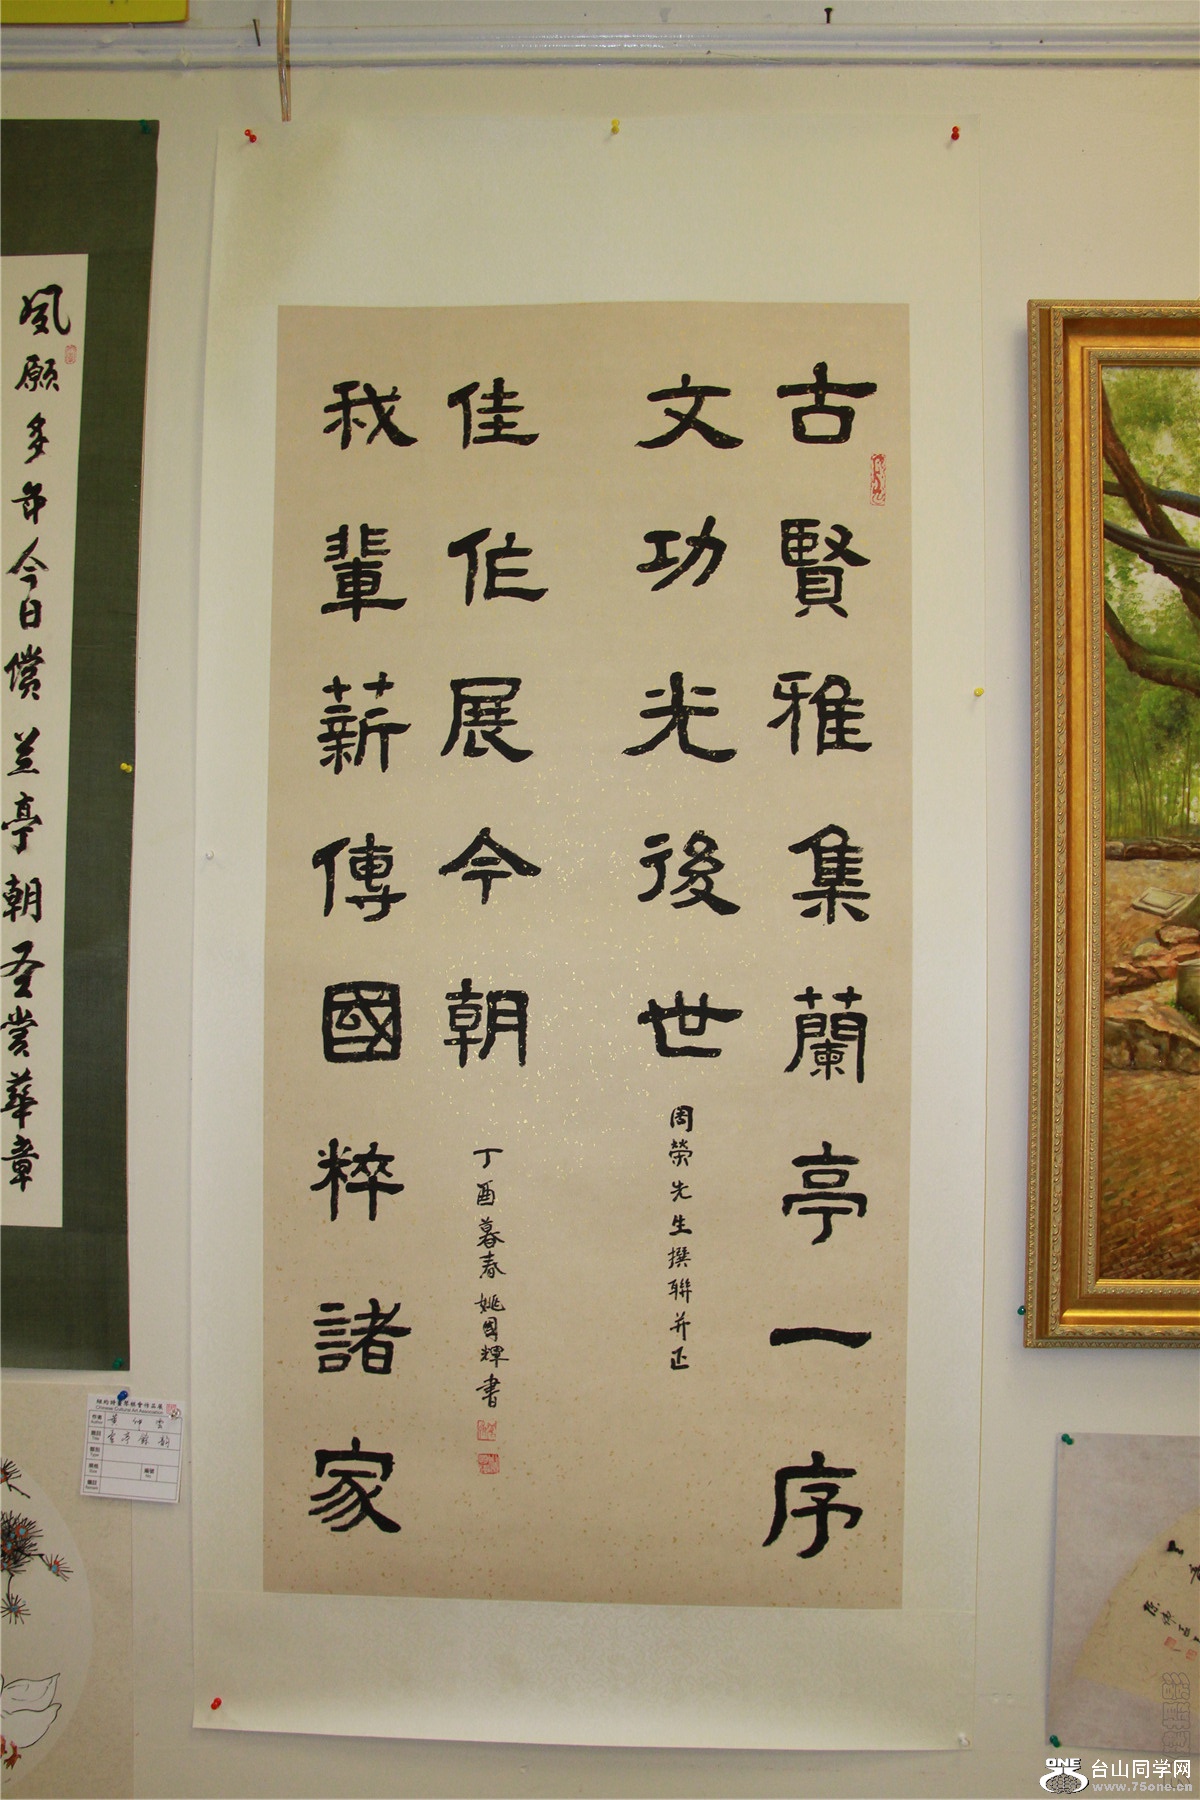 古賢雅集蘭亭一序
文功光後世
周榮先生撰聯并正
佳作展今朝
丁酉暮春姚國輝書
我輩薪傳國粹諸家
夙願多年今日償
兰亭朝圣賞華章
Chinese Cultural Art Association
作者
Author
題目
Title
ONE
台山同学网
www.75one.cn